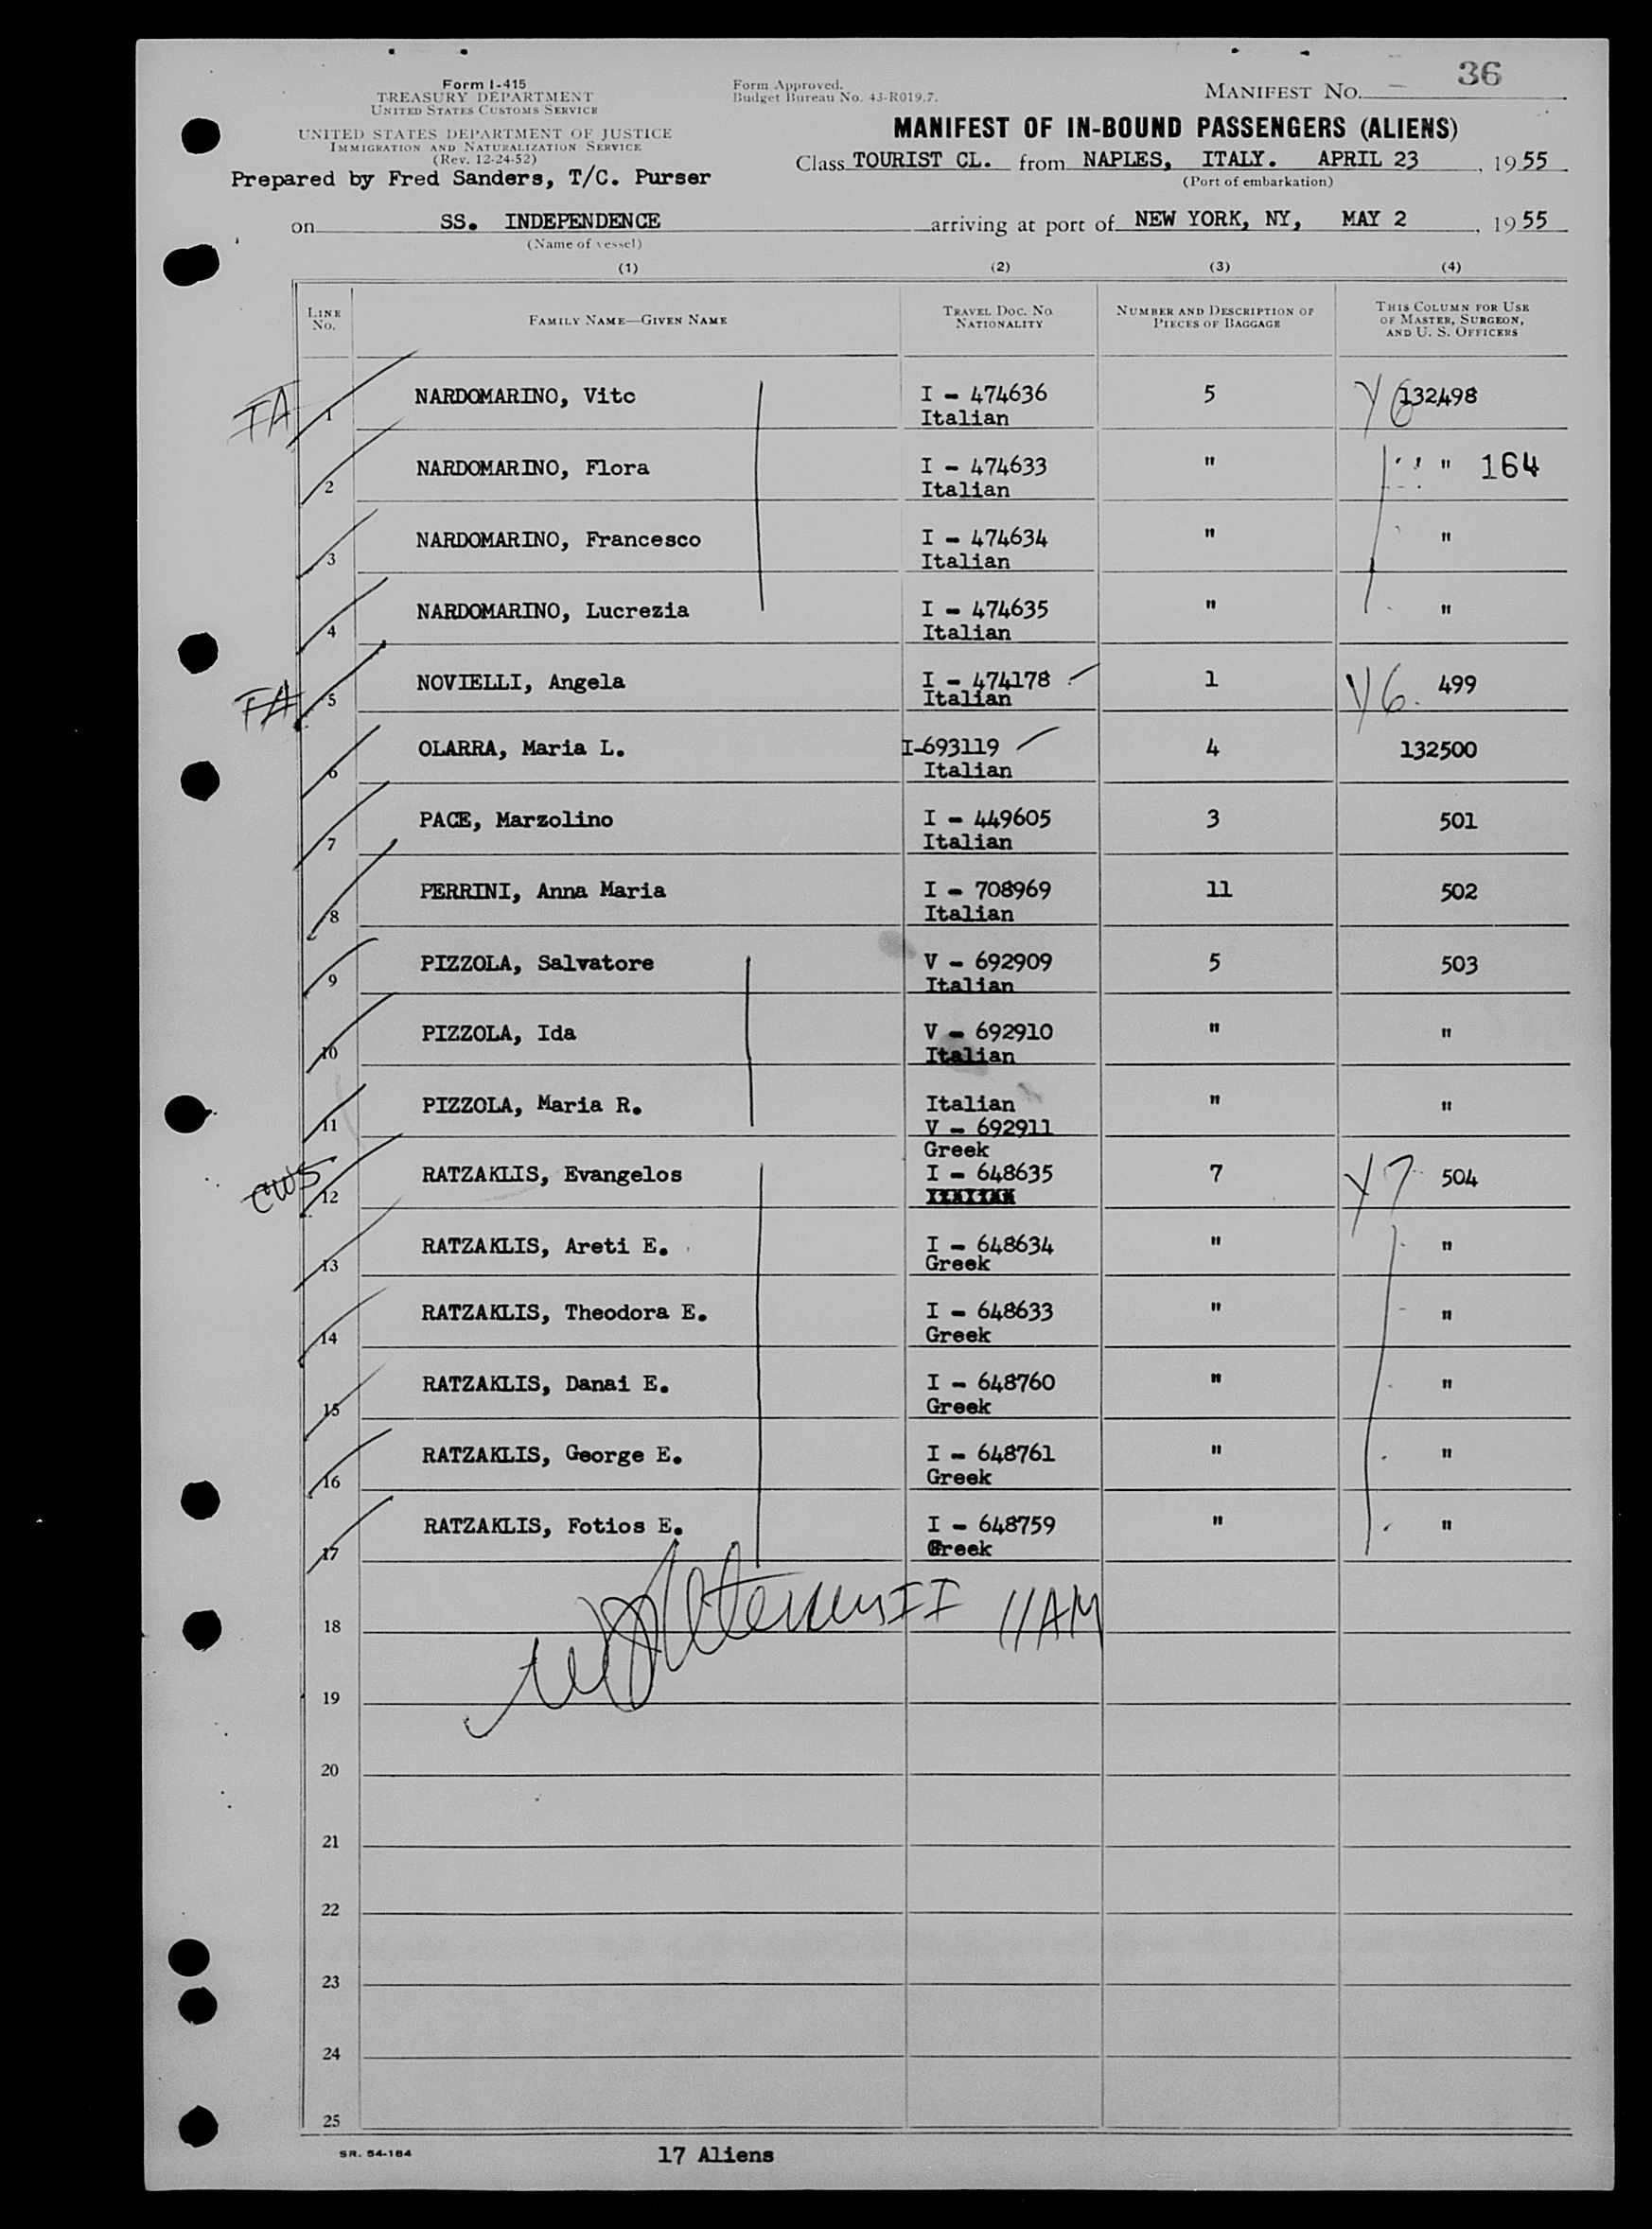 36
Form I-415
TREASURY DEPARTMENT
UNITED STATES CUSTOMS SERVICE
UNITED STATES DEPARTMENT OF JUSTICE
IMMIGRATION AND NATURALIZATION SERVICE
(Rev. 12-24-52)
Prepared by Fred Sanders, T/C. Purser
Form Approved.
Budget Bureau No. 43-R019.7.
MANIFEST No.
MANIFEST OF IN-BOUND PASSENGERS (ALIENS)
Class TOURIST CL. from NAPLES, ITALY. APRIL 23, 1955
(Port of embarkation)
on SS. INDEPENDENCE arriving at port of NEW YORK, NY, MAY 2, 1955
(Name of vessel)
(1) (2) (3) (4)
LINE No. FAMILY NAME—GIVEN NAME TRAVEL DOC. NO. NATIONALITY NUMBER AND DESCRIPTION OF PIECES OF BAGGAGE THIS COLUMN FOR USE OF MASTER, SURGEON, AND U. S. OFFICERS
IA 1 NARDOMARINO, Vito I - 474636 5 132498
Italian
2 NARDOMARINO, Flora I - 474633 " " 164
Italian
3 NARDOMARINO, Francesco I - 474634 " "
Italian
4 NARDOMARINO, Lucrezia I - 474635 " "
Italian
5 NOVIELLI, Angela I - 474178 1 499
Italian
6 OLARRA, Maria L. I-693119 4 132500
Italian
7 PACE, Marzolino I - 449605 3 501
Italian
8 PERRINI, Anna Maria I - 708969 11 502
Italian
9 PIZZOLA, Salvatore V - 692909 5 503
Italian
10 PIZZOLA, Ida V - 692910 " "
Italian
11 PIZZOLA, Maria R. Italian " "
V - 692911
Greek
CWS 12 RATZAKLIS, Evangelos I - 648635 7 504
13 RATZAKLIS, Areti E. I - 648634 " "
Greek
14 RATZAKLIS, Theodora E. I - 648633 " "
Greek
15 RATZAKLIS, Danai E. I - 648760 " "
Greek
16 RATZAKLIS, George E. I - 648761 " "
Greek
17 RATZAKLIS, Fotios E. I - 648759 " "
Greek
18 II 11AM
19
20
21
22
23
24
25
SR. 54-184
17 Aliens